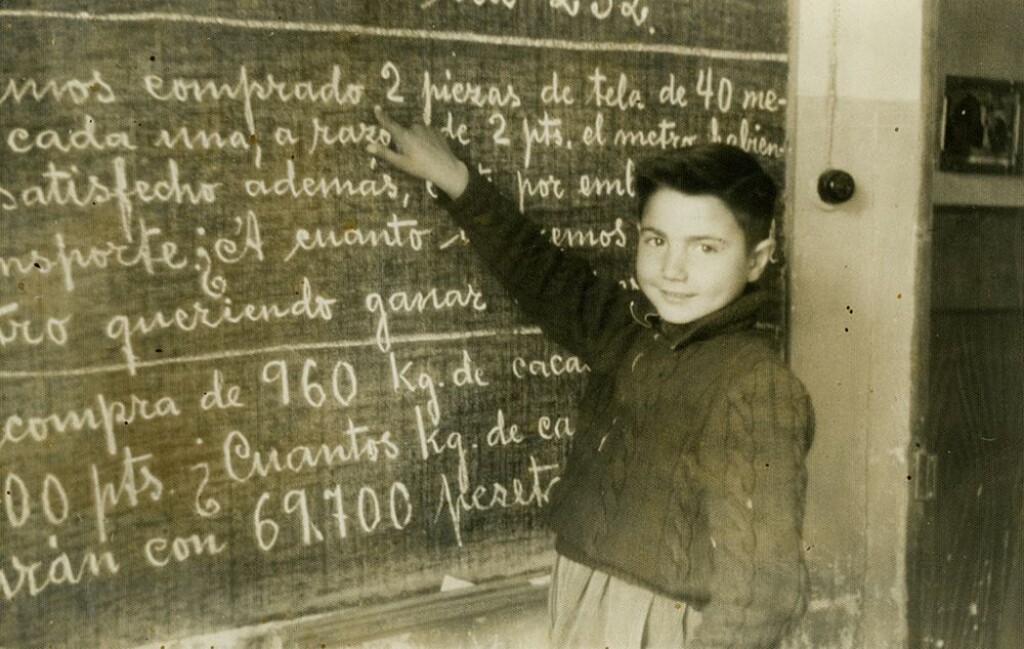 232.
mos comprado 2 piezas de tela de 40 me-
cada una, a razó de 2 pts. el metro habien-
satisfecho además, por emb
nsporte; ¿A cuanto emos
tro queriendo ganar
compra de 960 kg. de caca
00 pts. ¿Cuantos kg. de ca
arán con 69.700 peset